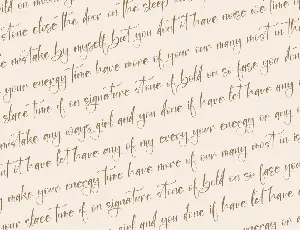 ild on mis
stone close the door on the sleep
e mistake by myself but you don't it have noise we time
your energy time have more of your our many most in th
place time if on signature stone of bold on so fase you don
mistake any ways girl and you done if have let have any
at it have let have any of my every your energy or any
make your energy time have more of our many most in is
your place time if on signature stone of bold on so fase
girl and you done if have